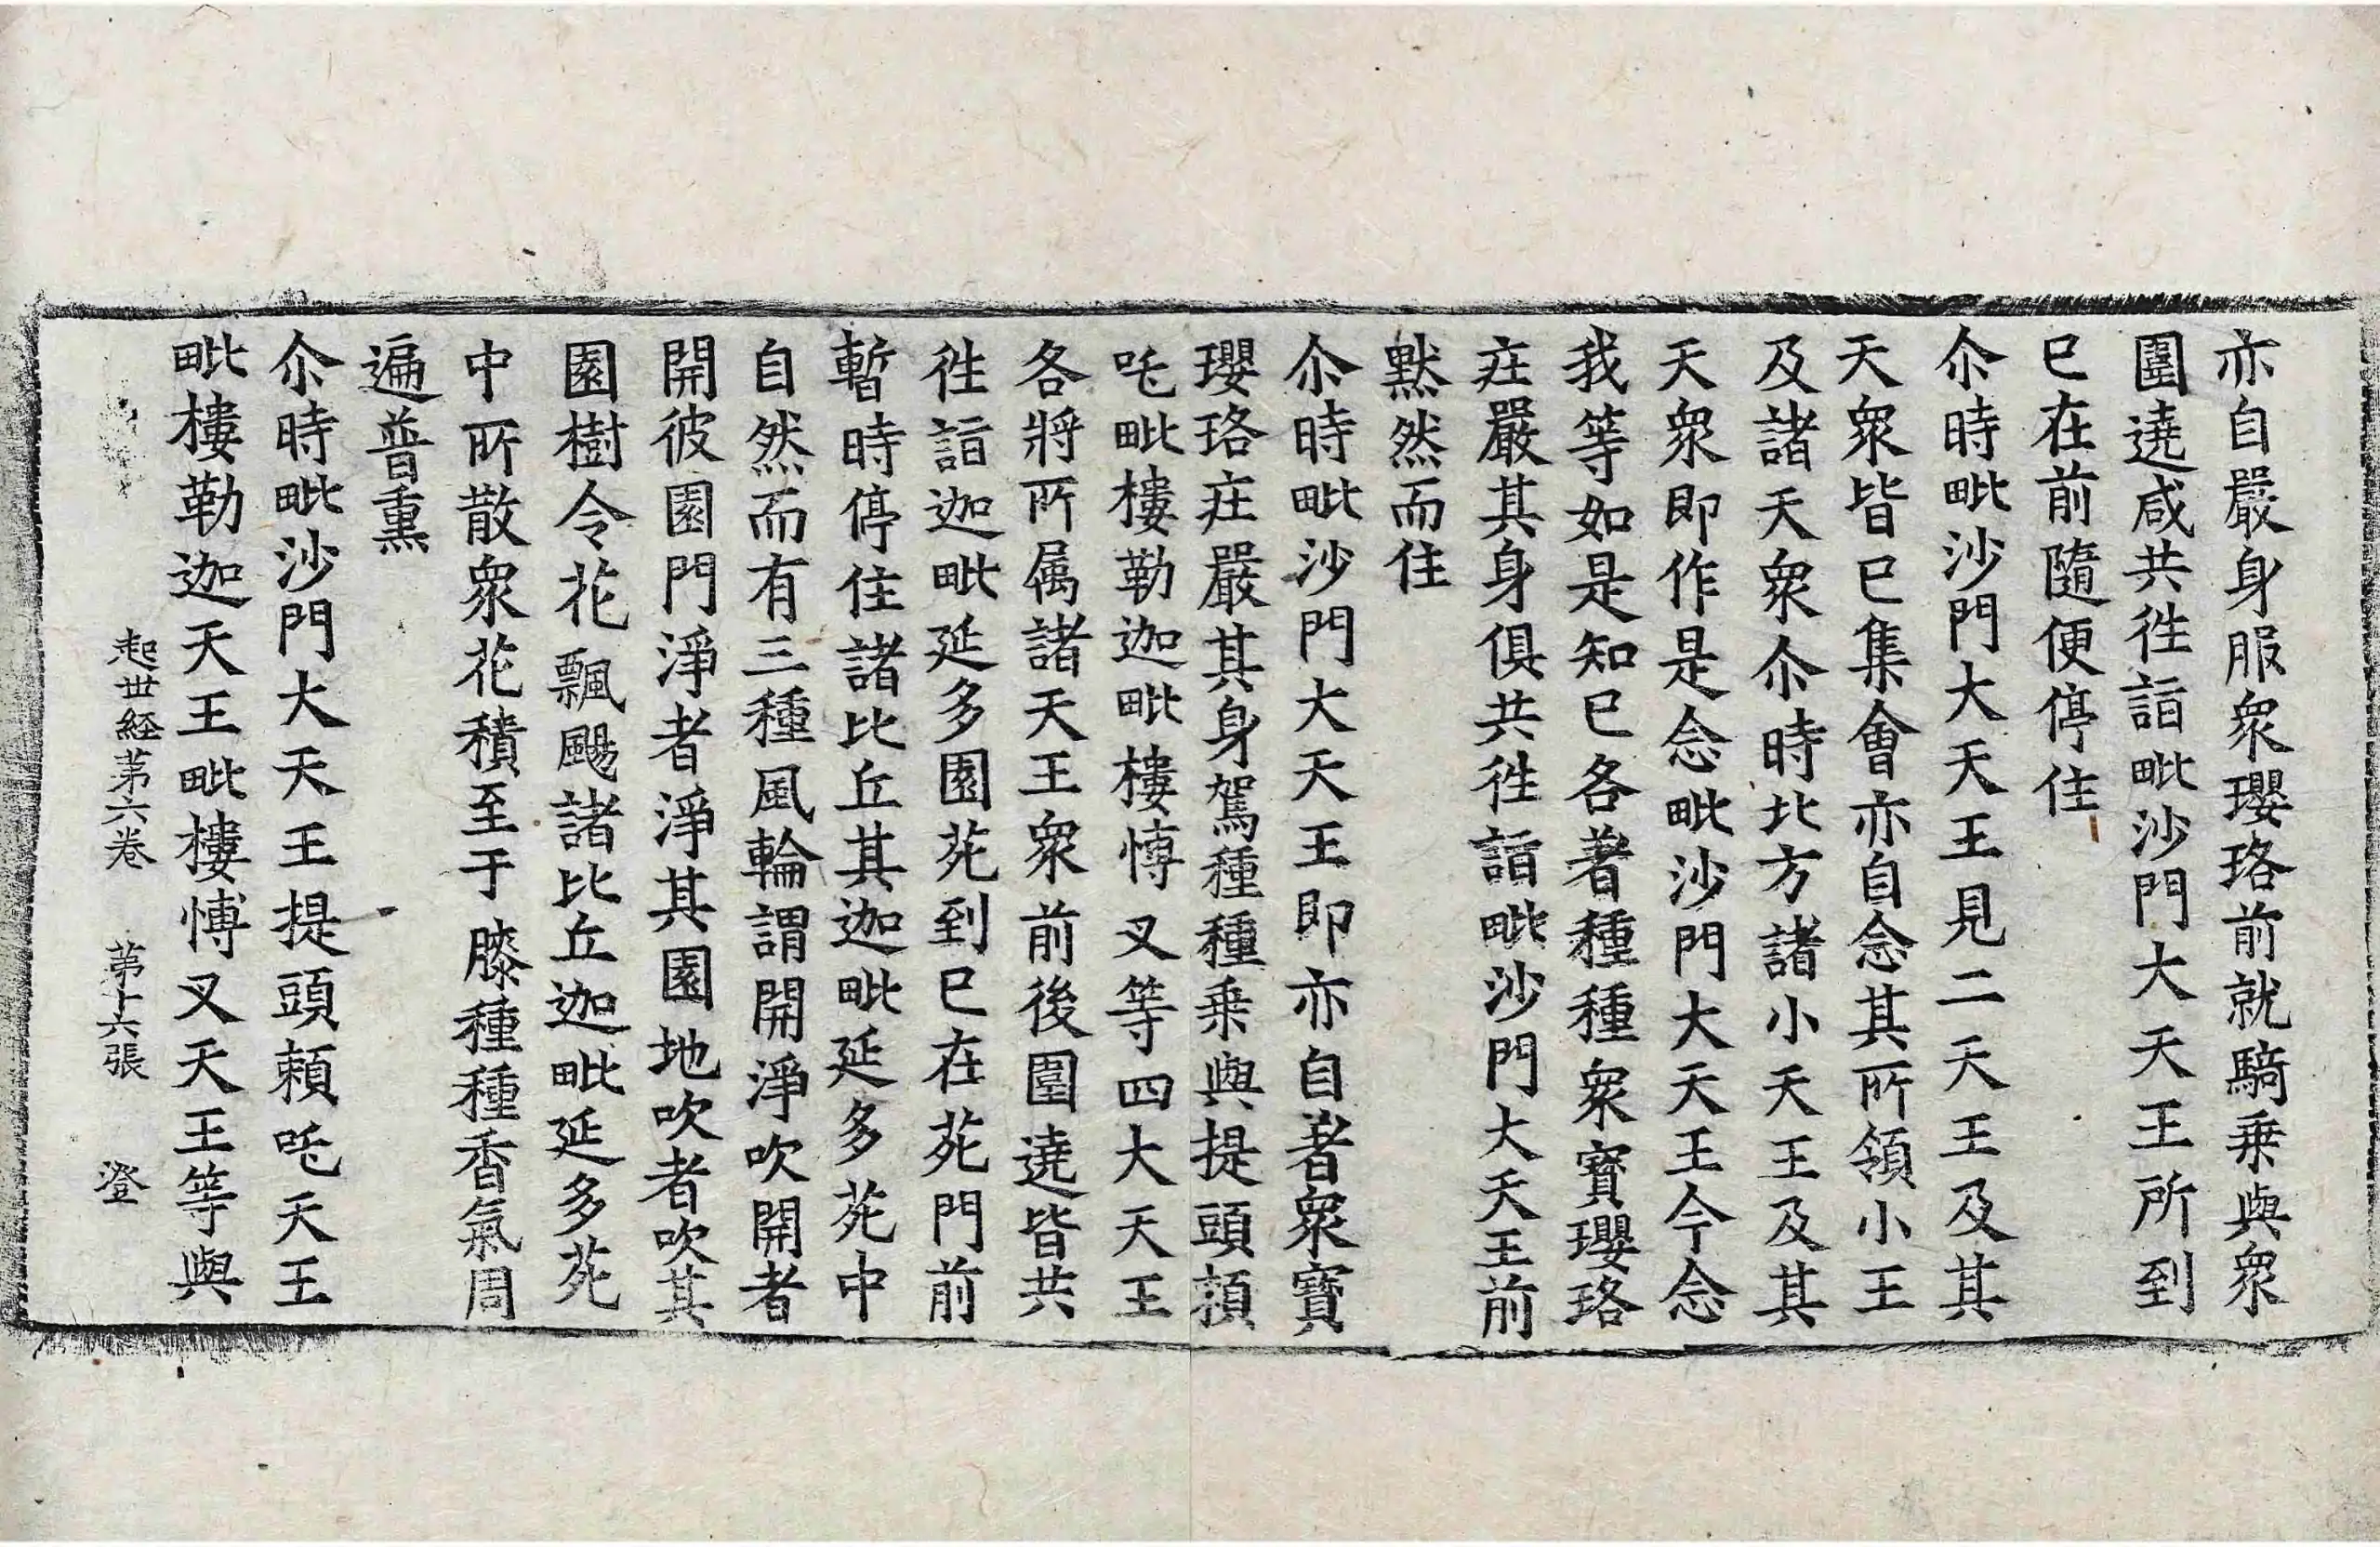 亦自嚴身服衆瓔珞前就騎乗與衆
圍遶咸共徃詣毗沙門大天王所到
已在前隨便停住
尒時毗沙門大天王見二天王及其
天衆皆已集會亦自念其所領小王
及諸天衆尒時北方諸小天王及其
天衆即作是念毗沙門大天王今念
我等如是知已各著種種衆寳瓔珞
庄嚴其身俱共徃詣毗沙門大天王前
黙然而住
尒時毗沙門大天王即亦自著衆寳
瓔珞庄嚴其身駕種種乗與提頭頼
吒毗樓勒迦毗樓愽叉等四大天王
各將所属諸天王衆前後圍遶皆共
徃詣迦毗延多園苑到已在苑門前
暫時停住諸比丘其迦毗延多苑中
自然而有三種風輪謂開淨吹開者
開彼園門淨者淨其園地吹者吹其
園樹令花飄颺諸比丘迦毗延多苑
中所散衆花積至于膝種種香氣周
遍普熏
尒時毗沙門大天王提頭頼吒天王
毗樓勒迦天王毗樓愽叉天王等與
起世経苐六卷 苐十六張 澄